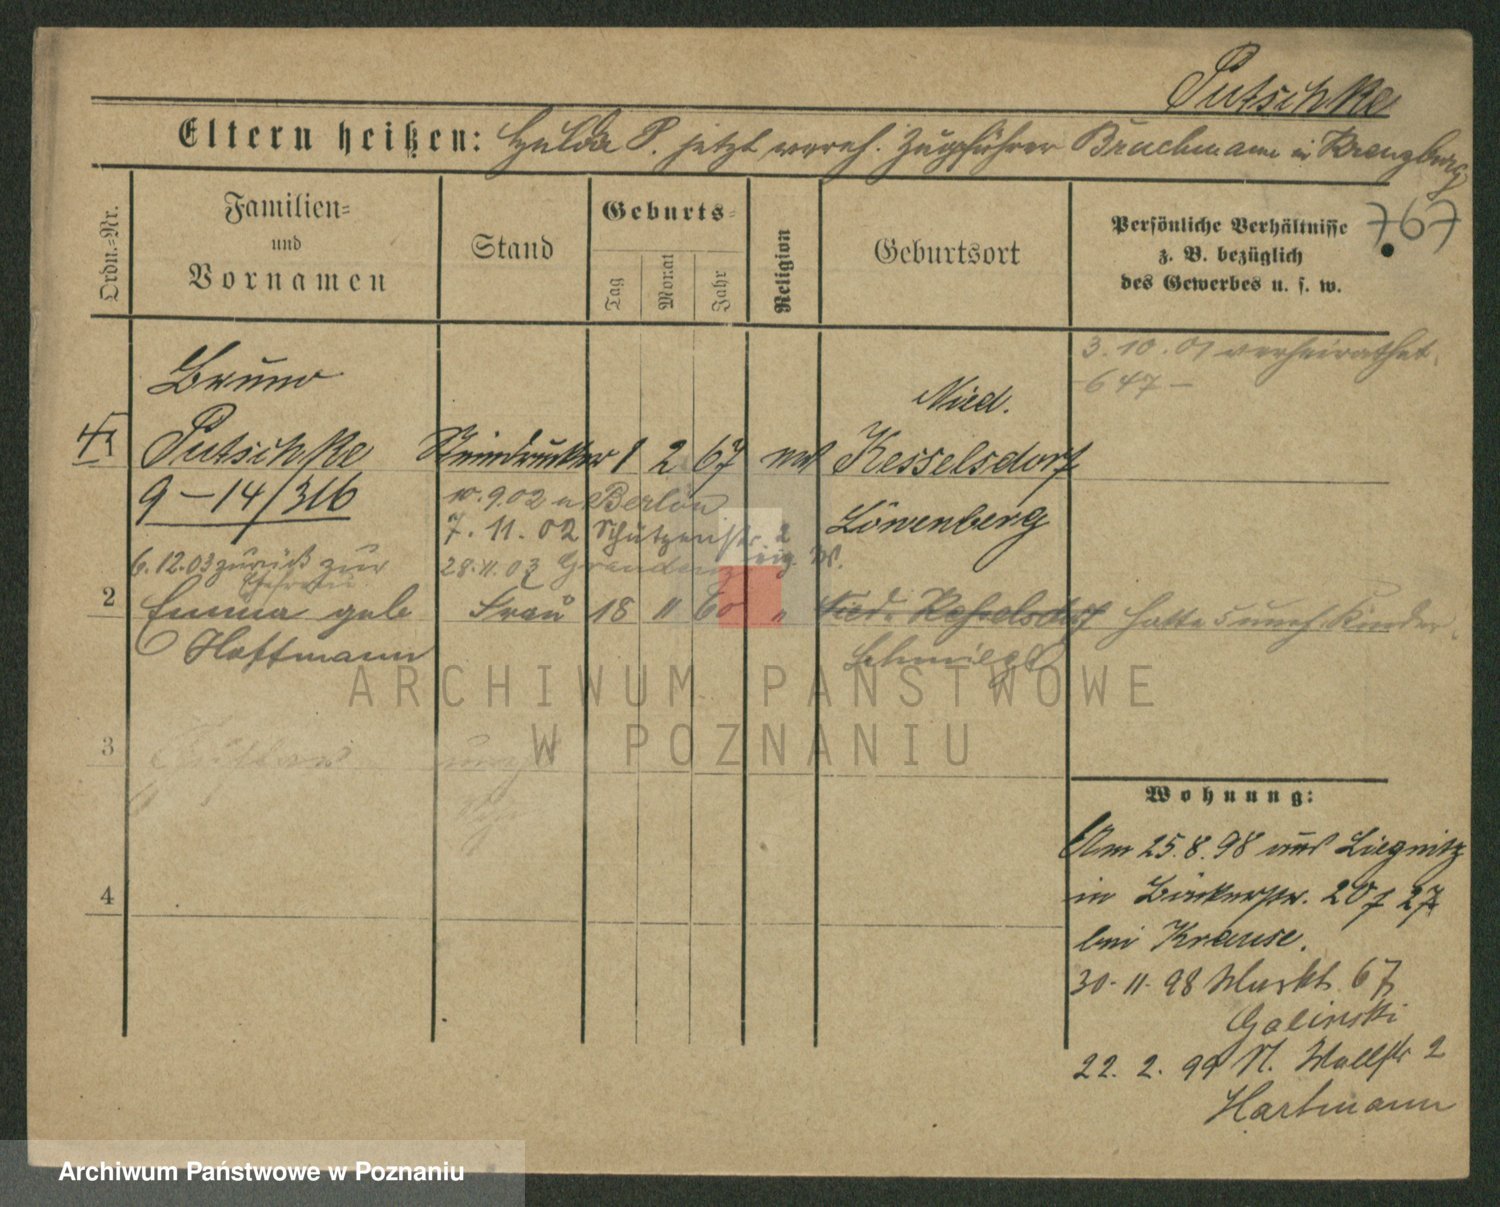 Putschke
Eltern heißen: Hulda P. jetzt vereh. Zugführer Bruchmann in Kreuzburg
767
Ordn.-Nr.
Familien-
und
Vornamen
Stand
Geburts-
Tag
Monat
Jahr
Religion
Geburtsort
Persönliche Verhältnisse
z. B. bezüglich
des Gewerbes u. s. w.
3.10.01 verheirathet
- 647 -
Bruno
Putschke Steindrucker 1 2 67
Nied.
Kesselsdorf
9 - 14/316
Löwenberg
10.9.02 n Berlin
7.11.02 Schützenstr. 2
6.12.03 zurück zur
Ehefrau
28.11.03 Graudenz
2 Emma geb Frau 18 11 60 "
Hoffmann
Schmiegel
hatte Kinder
3
4
Wohnung:
Am 25.8.98 aus Liegnitz
in Bäckerstr. 20 27
bei Krause.
30.11.98 Markt 67
Galinski
22.2.99 N. Wallstr 2
Hartmann
ARCHIWUM PAŃSTWOWE
W POZNANIU
Archiwum Państwowe w Poznaniu